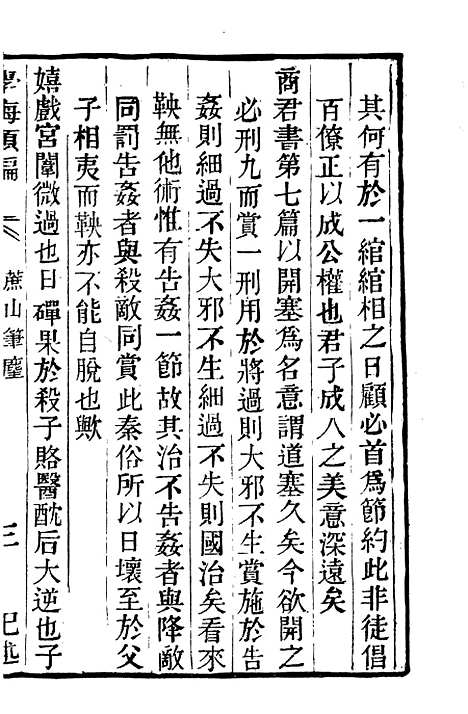 其何有於一綰綰相之日顧必首爲節約此非徒倡
百僚正以成公權也君子成人之美意深遠矣
商君書第七篇以開塞爲名意謂道塞久矣今欲開之
必刑九而賞一刑用於將過則大邪不生賞施於告
姦則細過不失大邪不生細過不失則國治矣看來
鞅無他術惟有告姦一節故其治不告姦者與降敵
同罰告姦者與殺敵同賞此秦俗所以日壞至於父
子相夷而鞅亦不能自脫也歟
嬉戲宮闈微過也日磾果於殺子賂醫酖后大逆也子
學海類編
蔗山筆麈
三
記述